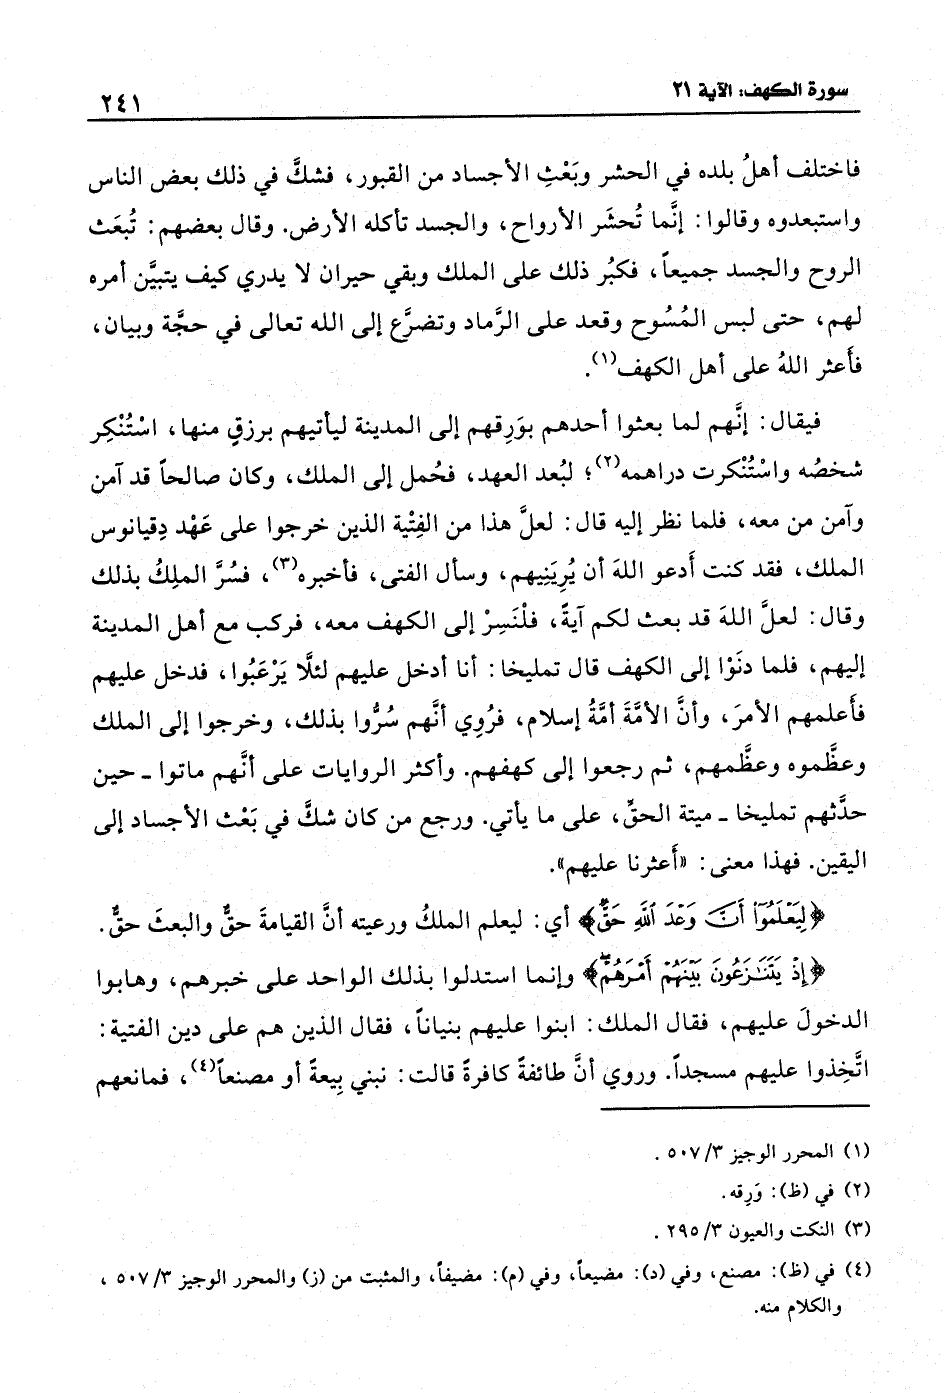 سورة الكهف: الآية ٢١
٢٤١
فاختلف أهلُ بلده في الحشر وبَعْثِ الأجساد من القبور، فشكَّ في ذلك بعض الناس
واستبعدوه وقالوا: إنَّما تُحشَر الأرواح، والجسد تأكله الأرض. وقال بعضهم: تُبعَث
الروح والجسد جميعاً، فكبُر ذلك على الملك وبقي حيران لا يدري كيف يتبيَّن أمره
لهم، حتى لبس المُسُوح وقعد على الرَّماد وتضرَّع إلى الله تعالى في حجَّة وبيان،
فأَعثر اللهُ على أهل الكهف(١).
فيقال: إنَّهم لما بعثوا أحدهم بوَرِقهم إلى المدينة ليأتيهم برزقٍ منها، اسْتُنْكِر
شخصُه واسْتُنْكرت دراهمه(٢)؛ لبُعد العهد، فحُمل إلى الملك، وكان صالحاً قد آمن
وآمن من معه، فلما نظر إليه قال: لعلَّ هذا من الفِتْية الذين خرجوا على عَهْد دِقيانوس
الملك، فقد كنت أَدعو اللهَ أن يُرِيَنِيهم، وسأل الفتى، فأخبره(٣)، فسُرَّ الملِكُ بذلك
وقال: لعلَّ اللهَ قد بعث لكم آيةً، فلْنَسِرْ إلى الكهف معه، فركب مع أهل المدينة
إليهم، فلما دنَوْا إلى الكهف قال تمليخا: أنا أدخل عليهم لئلَّا يَرْعَبُوا، فدخل عليهم
فأَعلمهم الأمرَ، وأنَّ الأمَّةَ أمَّةُ إسلام، فرُوِي أنَّهم سُرُّوا بذلك، وخرجوا إلى الملك
وعظَّموه وعظَّمهم، ثم رجعوا إلى كهفهم. وأكثر الروايات على أنَّهم ماتوا ـ حين
حدَّثهم تمليخا ـ ميتة الحقِّ، على ما يأتي. ورجع من كان شكَّ في بَعْث الأجساد إلى
اليقين. فهذا معنى: «أَعثرنا عليهم».
﴿لِيَعْلَمُوٓا۟ أَنَّ وَعْدَ ٱللَّهِ حَقٌّ﴾ أي: ليعلم الملكُ ورعيته أنَّ القيامةَ حقٌّ والبعثَ حقٌّ.
﴿إِذْ يَتَنَٰزَعُونَ بَيْنَهُمْ أَمْرَهُمْۖ﴾ وإنما استدلوا بذلك الواحد على خبرهم، وهابوا
الدخولَ عليهم، فقال الملك: ابنوا عليهم بنياناً، فقال الذين هم على دين الفتية:
اتَّخِذوا عليهم مسجداً. وروي أنَّ طائفةً كافرةً قالت: نبني بِيعةً أو مصنعاً(٤)، فمانعهم
(١) المحرر الوجيز ٥٠٧/٣ .
(٢) في (ظ): وَرِقه.
(٣) النكت والعيون ٢٩٥/٣ .
(٤) في (ظ): مصنع، وفي (د): مضيعاً، وفي (م): مضيفاً، والمثبت من (ز) والمحرر الوجيز ٥٠٧/٣ ،
والكلام منه.